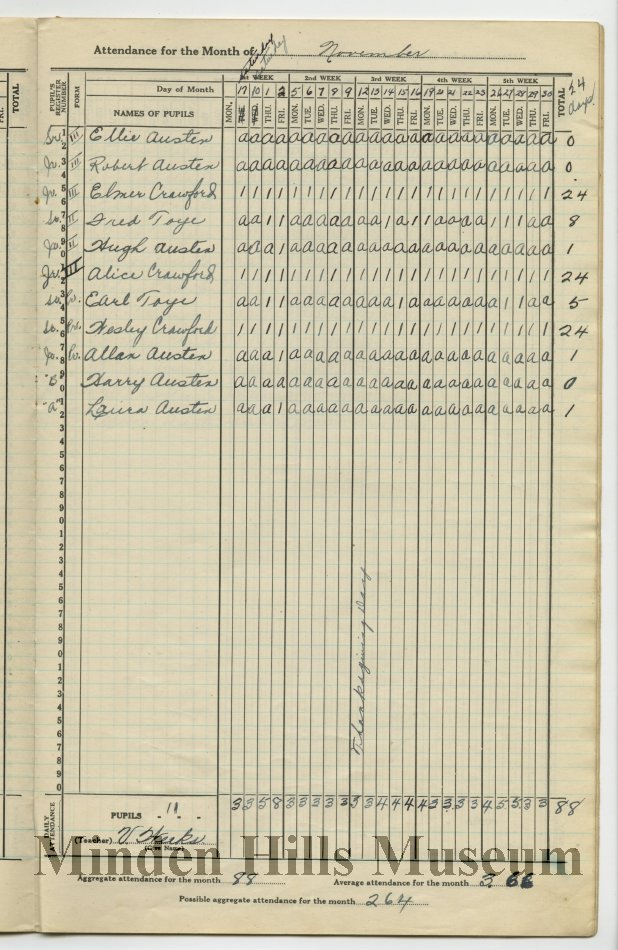 Attendance for the Month of November
Saturday
Saturday
TOTAL
FRI.
PUPIL'S REGISTER NUMBER
FORM
1st WEEK 2nd WEEK 3rd WEEK 4th WEEK 5th WEEK
Day of Month 17 10 1 2 5 6 7 8 9 12 13 14 15 16 19 20 21 22 23 26 27 28 29 30
TOTAL 24 days
NAMES OF PUPILS MON. TUE. WED. THU. FRI. MON. TUE. WED. THU. FRI. MON. TUE. WED. THU. FRI. MON. TUE. WED. THU. FRI. MON. TUE. WED. THU. FRI.
Sr. III Ellie Austen 0
Jr. III Robert Austen 0
Jr. III Elmer Crawford 24
Sr. II Fred Toye 8
Jr. II Hugh Austen 1
Jr. III Alice Crawford 24
Sr. Pr. Earl Toye 5
Sr. Pr. Wesley Crawford 24
Jr. Pr. Allan Austen 1
"B" Harry Austen 0
"A" Laura Austen 1
Thanksgiving Day
DAILY ATTENDANCE
PUPILS - 11 -
3 3 5 8 3 3 3 3 3 3 3 4 4 4 4 3 3 3 3 4 5 5 3 3 88
(Teacher) V
(Give Name)
Minden Hills Museum
Aggregate attendance for the month 88
Average attendance for the month 3.66
Possible aggregate attendance for the month 264